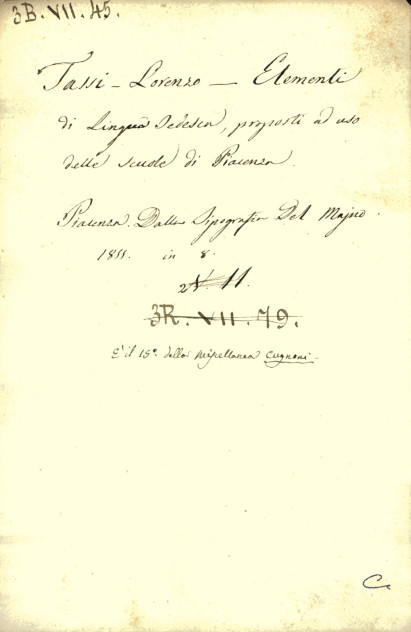 3B. VII. 45.
Tassi - Lorenzo - Elementi
di Lingua Tedesca, proposti ad uso
delle scuole di Piacenza.
Piacenza. Dalla Tipografia Del Majno.
1811. in 8.
11.
3R. VII. 79.
È il 15º. della Miscellanea Cugnoni.
C